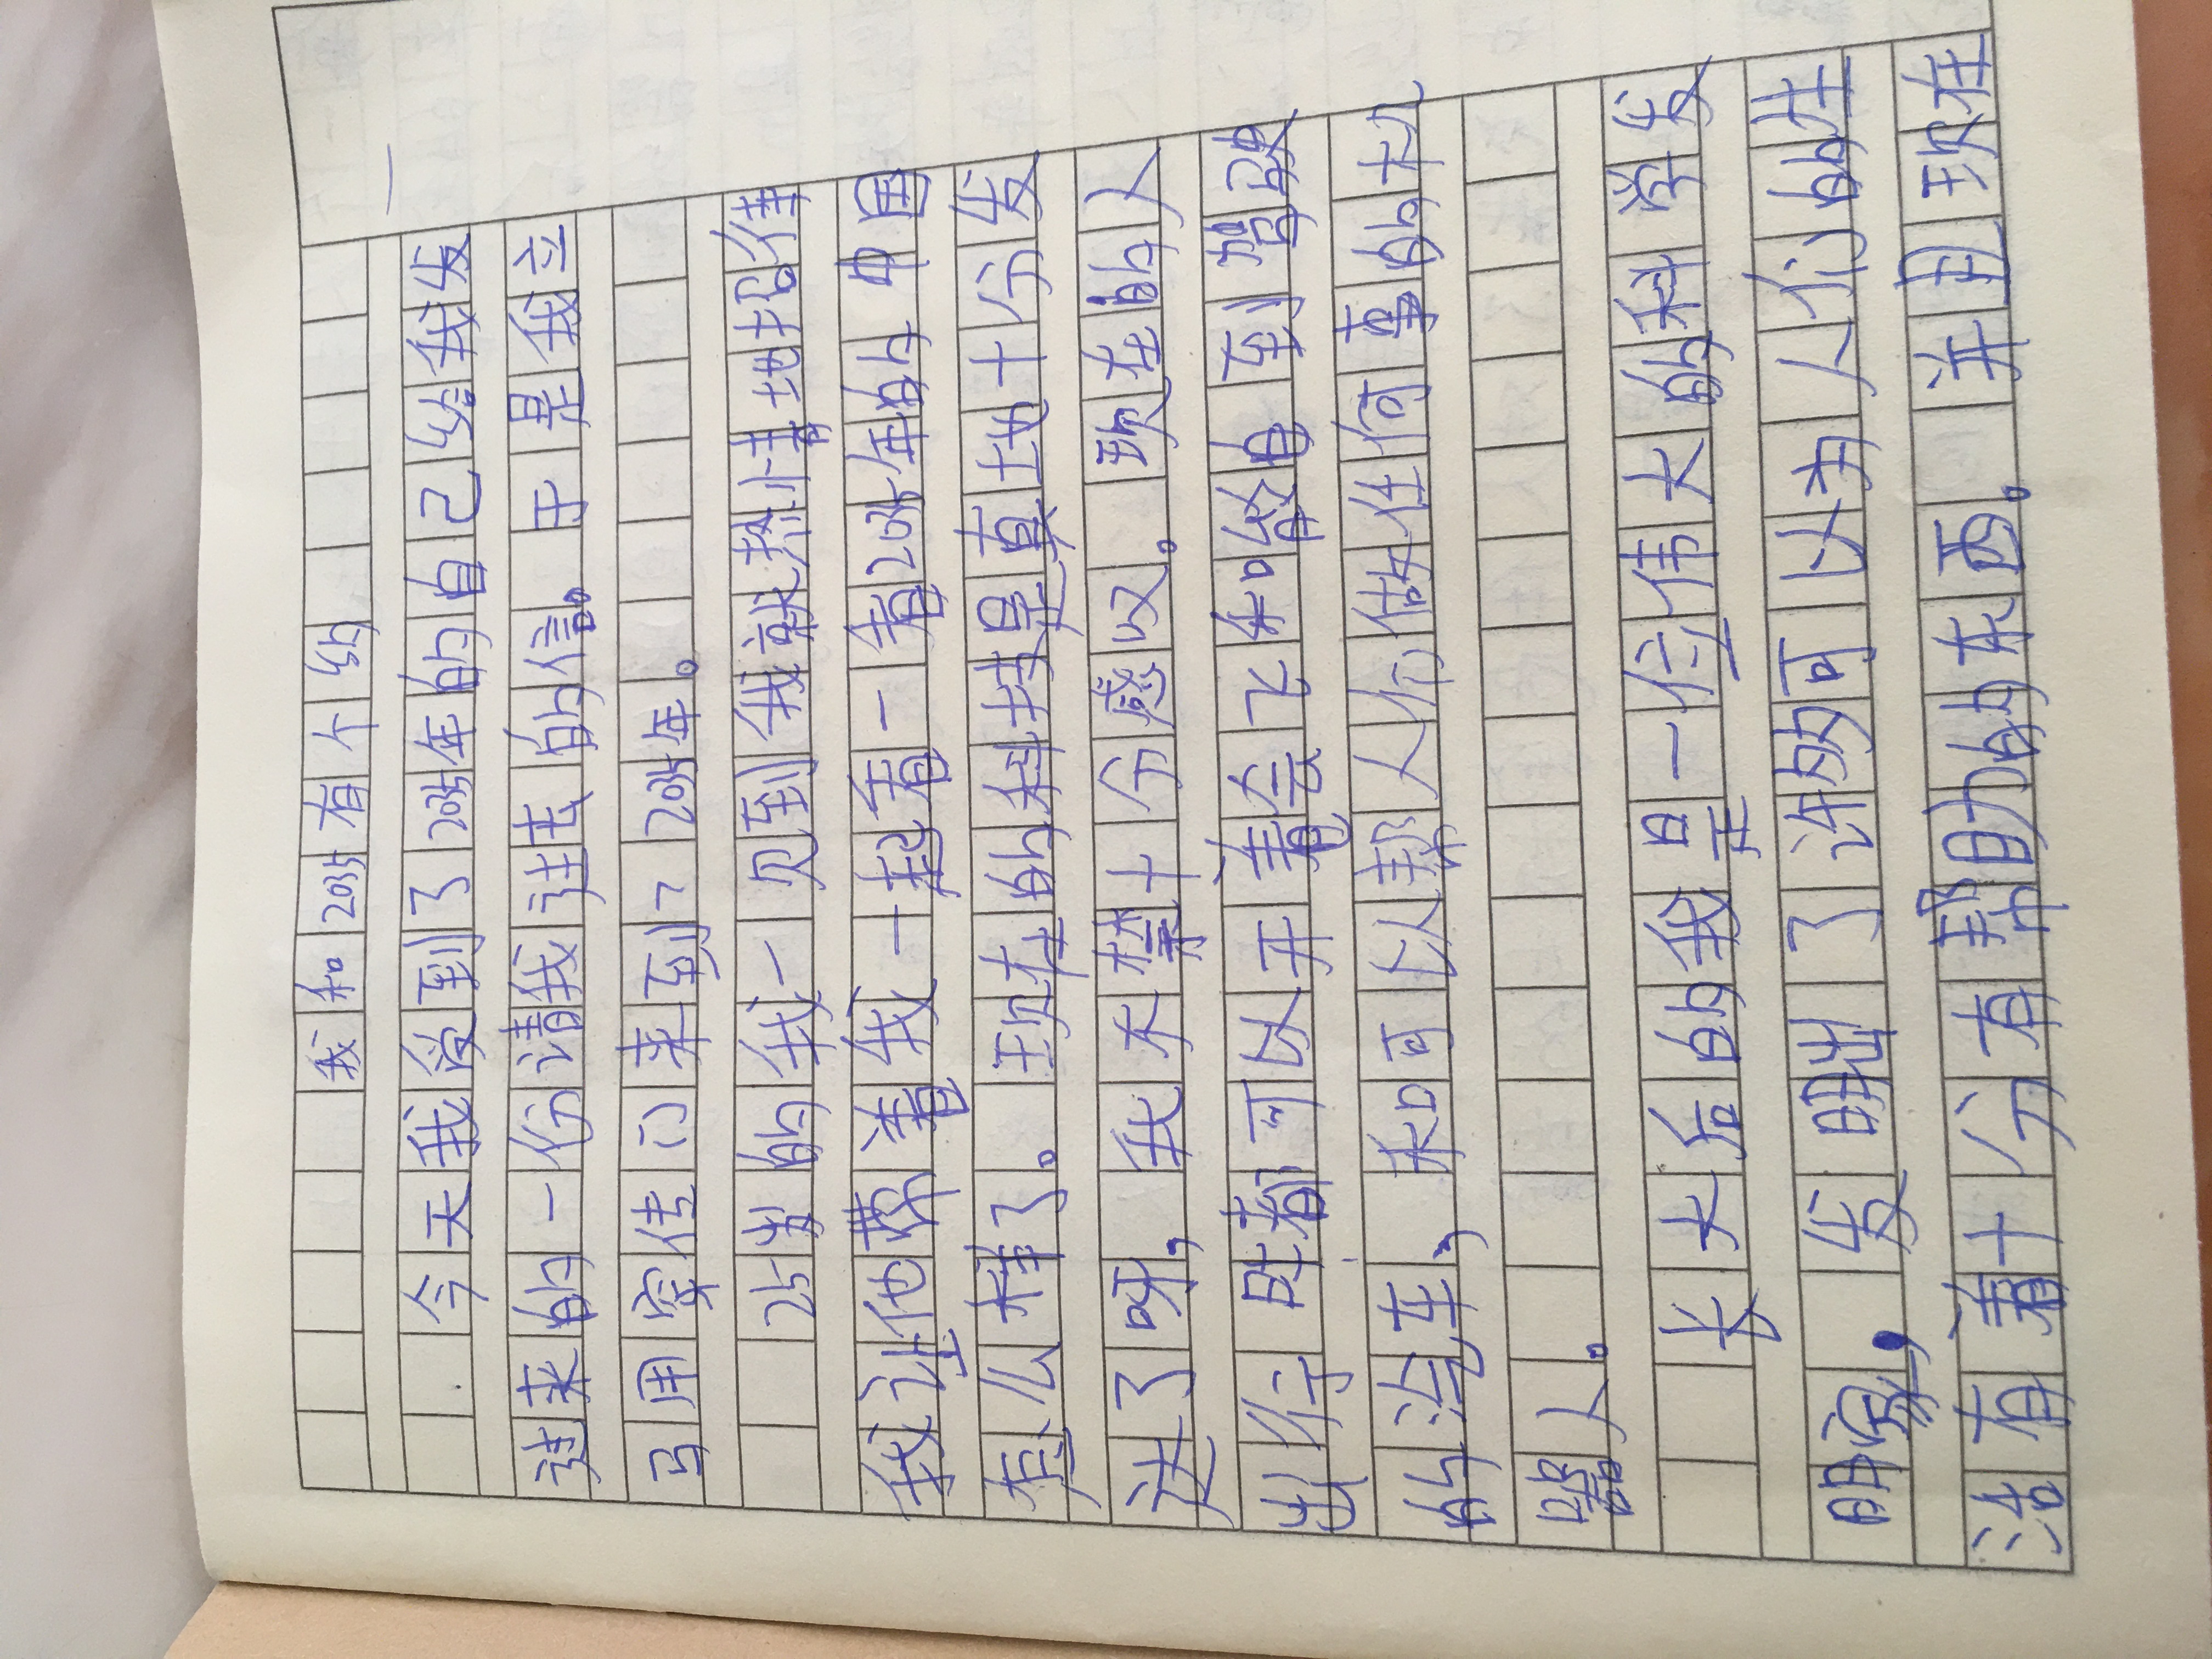 我和2035有个约
今天我受到了2035年的自己给我发
进来的一份请我进去的信。于是我立
马用穿传门来到了2035年。
25岁的我一见到我就热情地招待
我让他带着我一起看一看2035年的中国
怎么样了。现在的科技是真地十分发
达了呀，我不禁十分感叹。现在的人
出行时都可以开着会飞和自到驾驶
的汽车，和可以帮人们做任何事的机
器人。
长大后的我是一位伟大的科学发
明家，发明出了许多可以为人们的生
活有着十分有帮助的东西。并且现在